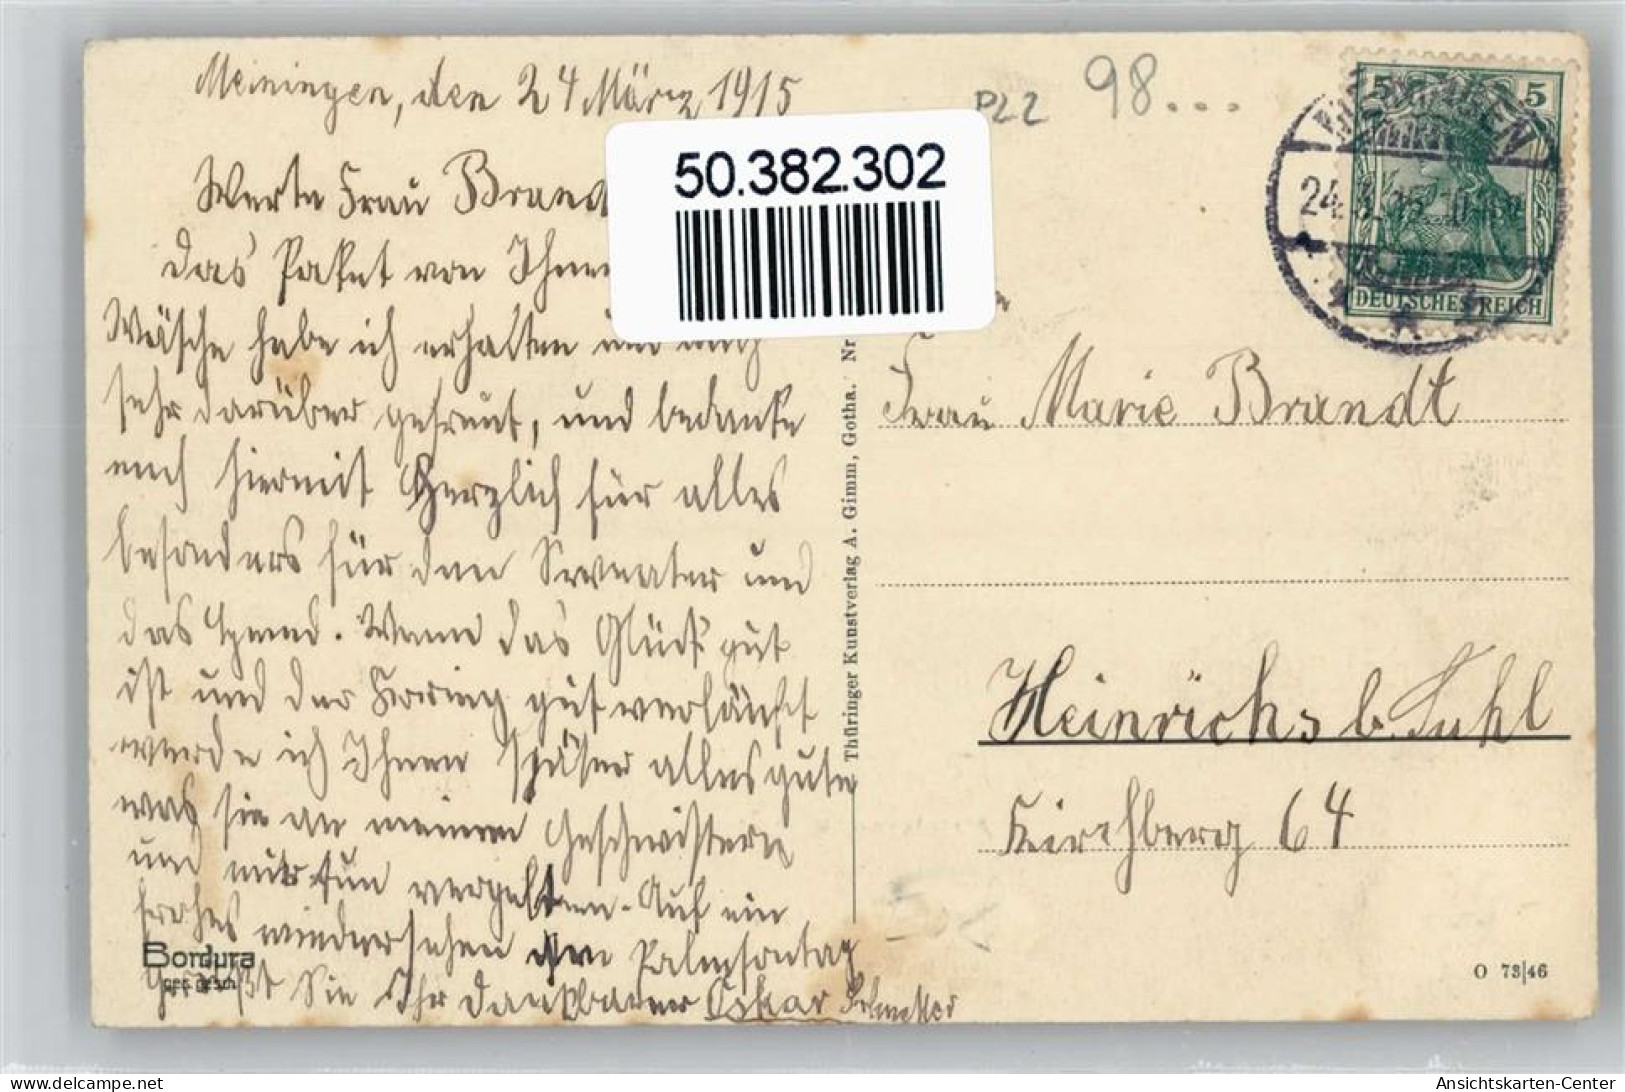 Meiningen, den 24 März 1915
Werte Frau Brand
das Paket von Ihnen
Wäsche habe ich erhalten und mich
sehr darüber gefreut, und bedanke
mich hiermit Herzlich für alles
besonders für den Serveater und
das Hemd. Wenn das Glück gut
ist und der Krieg gut verläuft
werde ich Ihnen später alles gute
was sie an meinen Geschwistern
und mir tun vergelten. Auf ein
frohes wiedersehen den Palmsontag
Grüßt Sie Ihr dankbarer Oskar
Bordura
ges. gesch.
50.382.302
PLZ 98...
5 5
MEININGEN
24.3.15
DEUTSCHES REICH
Thüringer Kunstverlag A. Gimm, Gotha. Nr
Frau Marie Brandt
Heinrichs b. Suhl
Kirchberg 64
O 73|46
delcampe.net
Ansichtskarten-Center